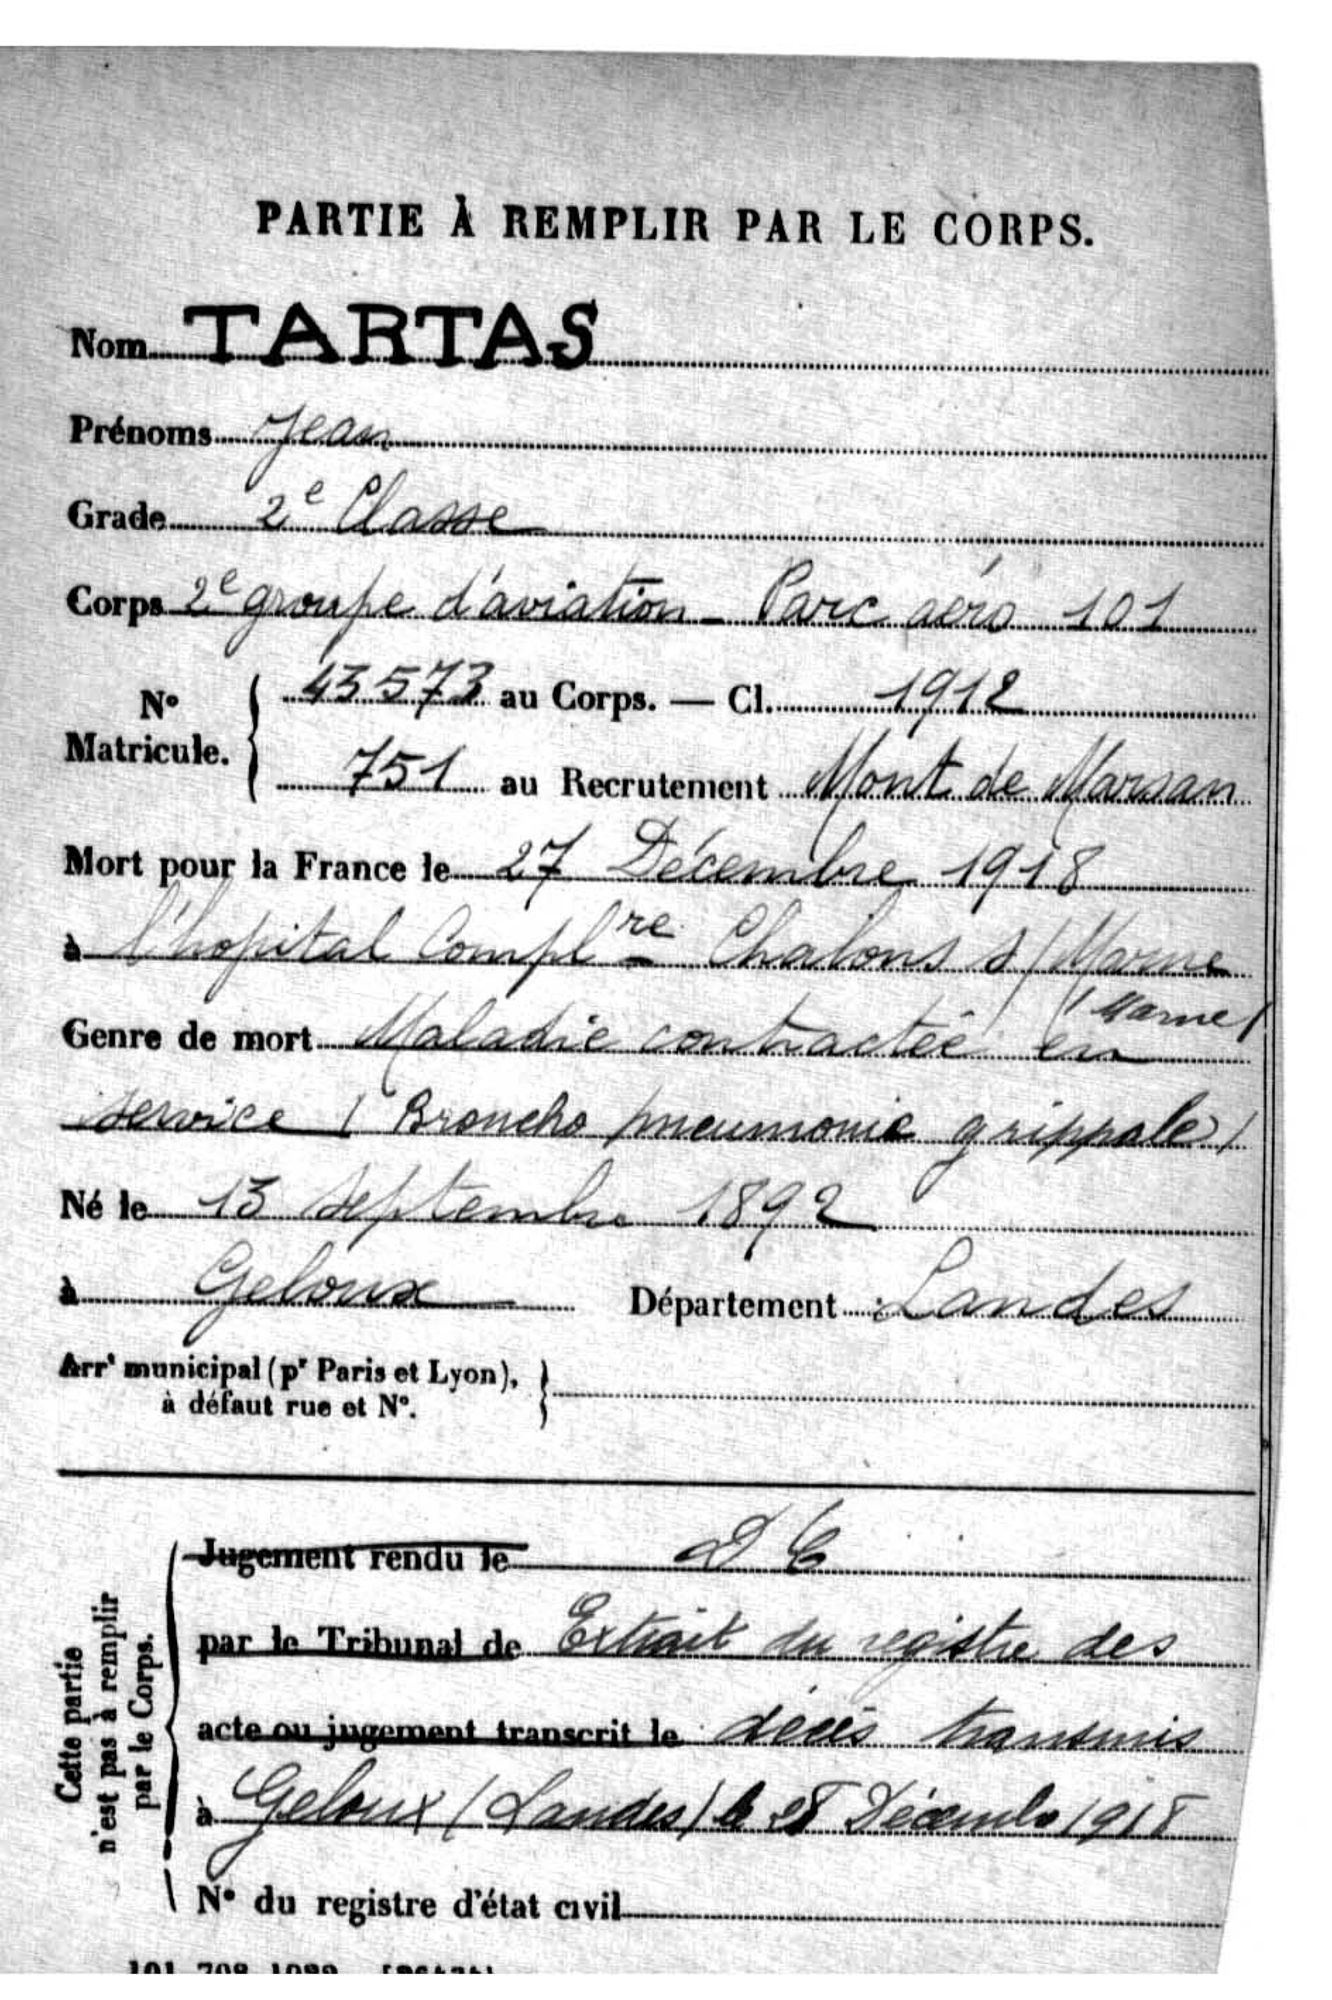 PARTIE À REMPLIR PAR LE CORPS.
Nom TARTAS
Prénoms Jean
Grade 2e Classe
Corps 2e groupe d'aviation - Parc aéro 101
N° Matricule. { 43573 au Corps. — Cl. 1912
751 au Recrutement Mont de Marsan
Mort pour la France le 27 Décembre 1918
à l'hopital Complre Chalons s/Marne
(Marne)
Genre de mort Maladie contractée en
service (Broncho pneumonie grippale)
Né le 13 septembre 1892
à Geloux Département Landes
Arrt municipal (pr Paris et Lyon),
à défaut rue et N°.
Cette partie
n'est pas à remplir
par le Corps.
Jugement rendu le
par le Tribunal de Extrait du registre des
acte ou jugement transcrit le décès transmis
à Geloux (Landes) le 28 Décembre 1918
N° du registre d'état civil
101. 708. 1922.